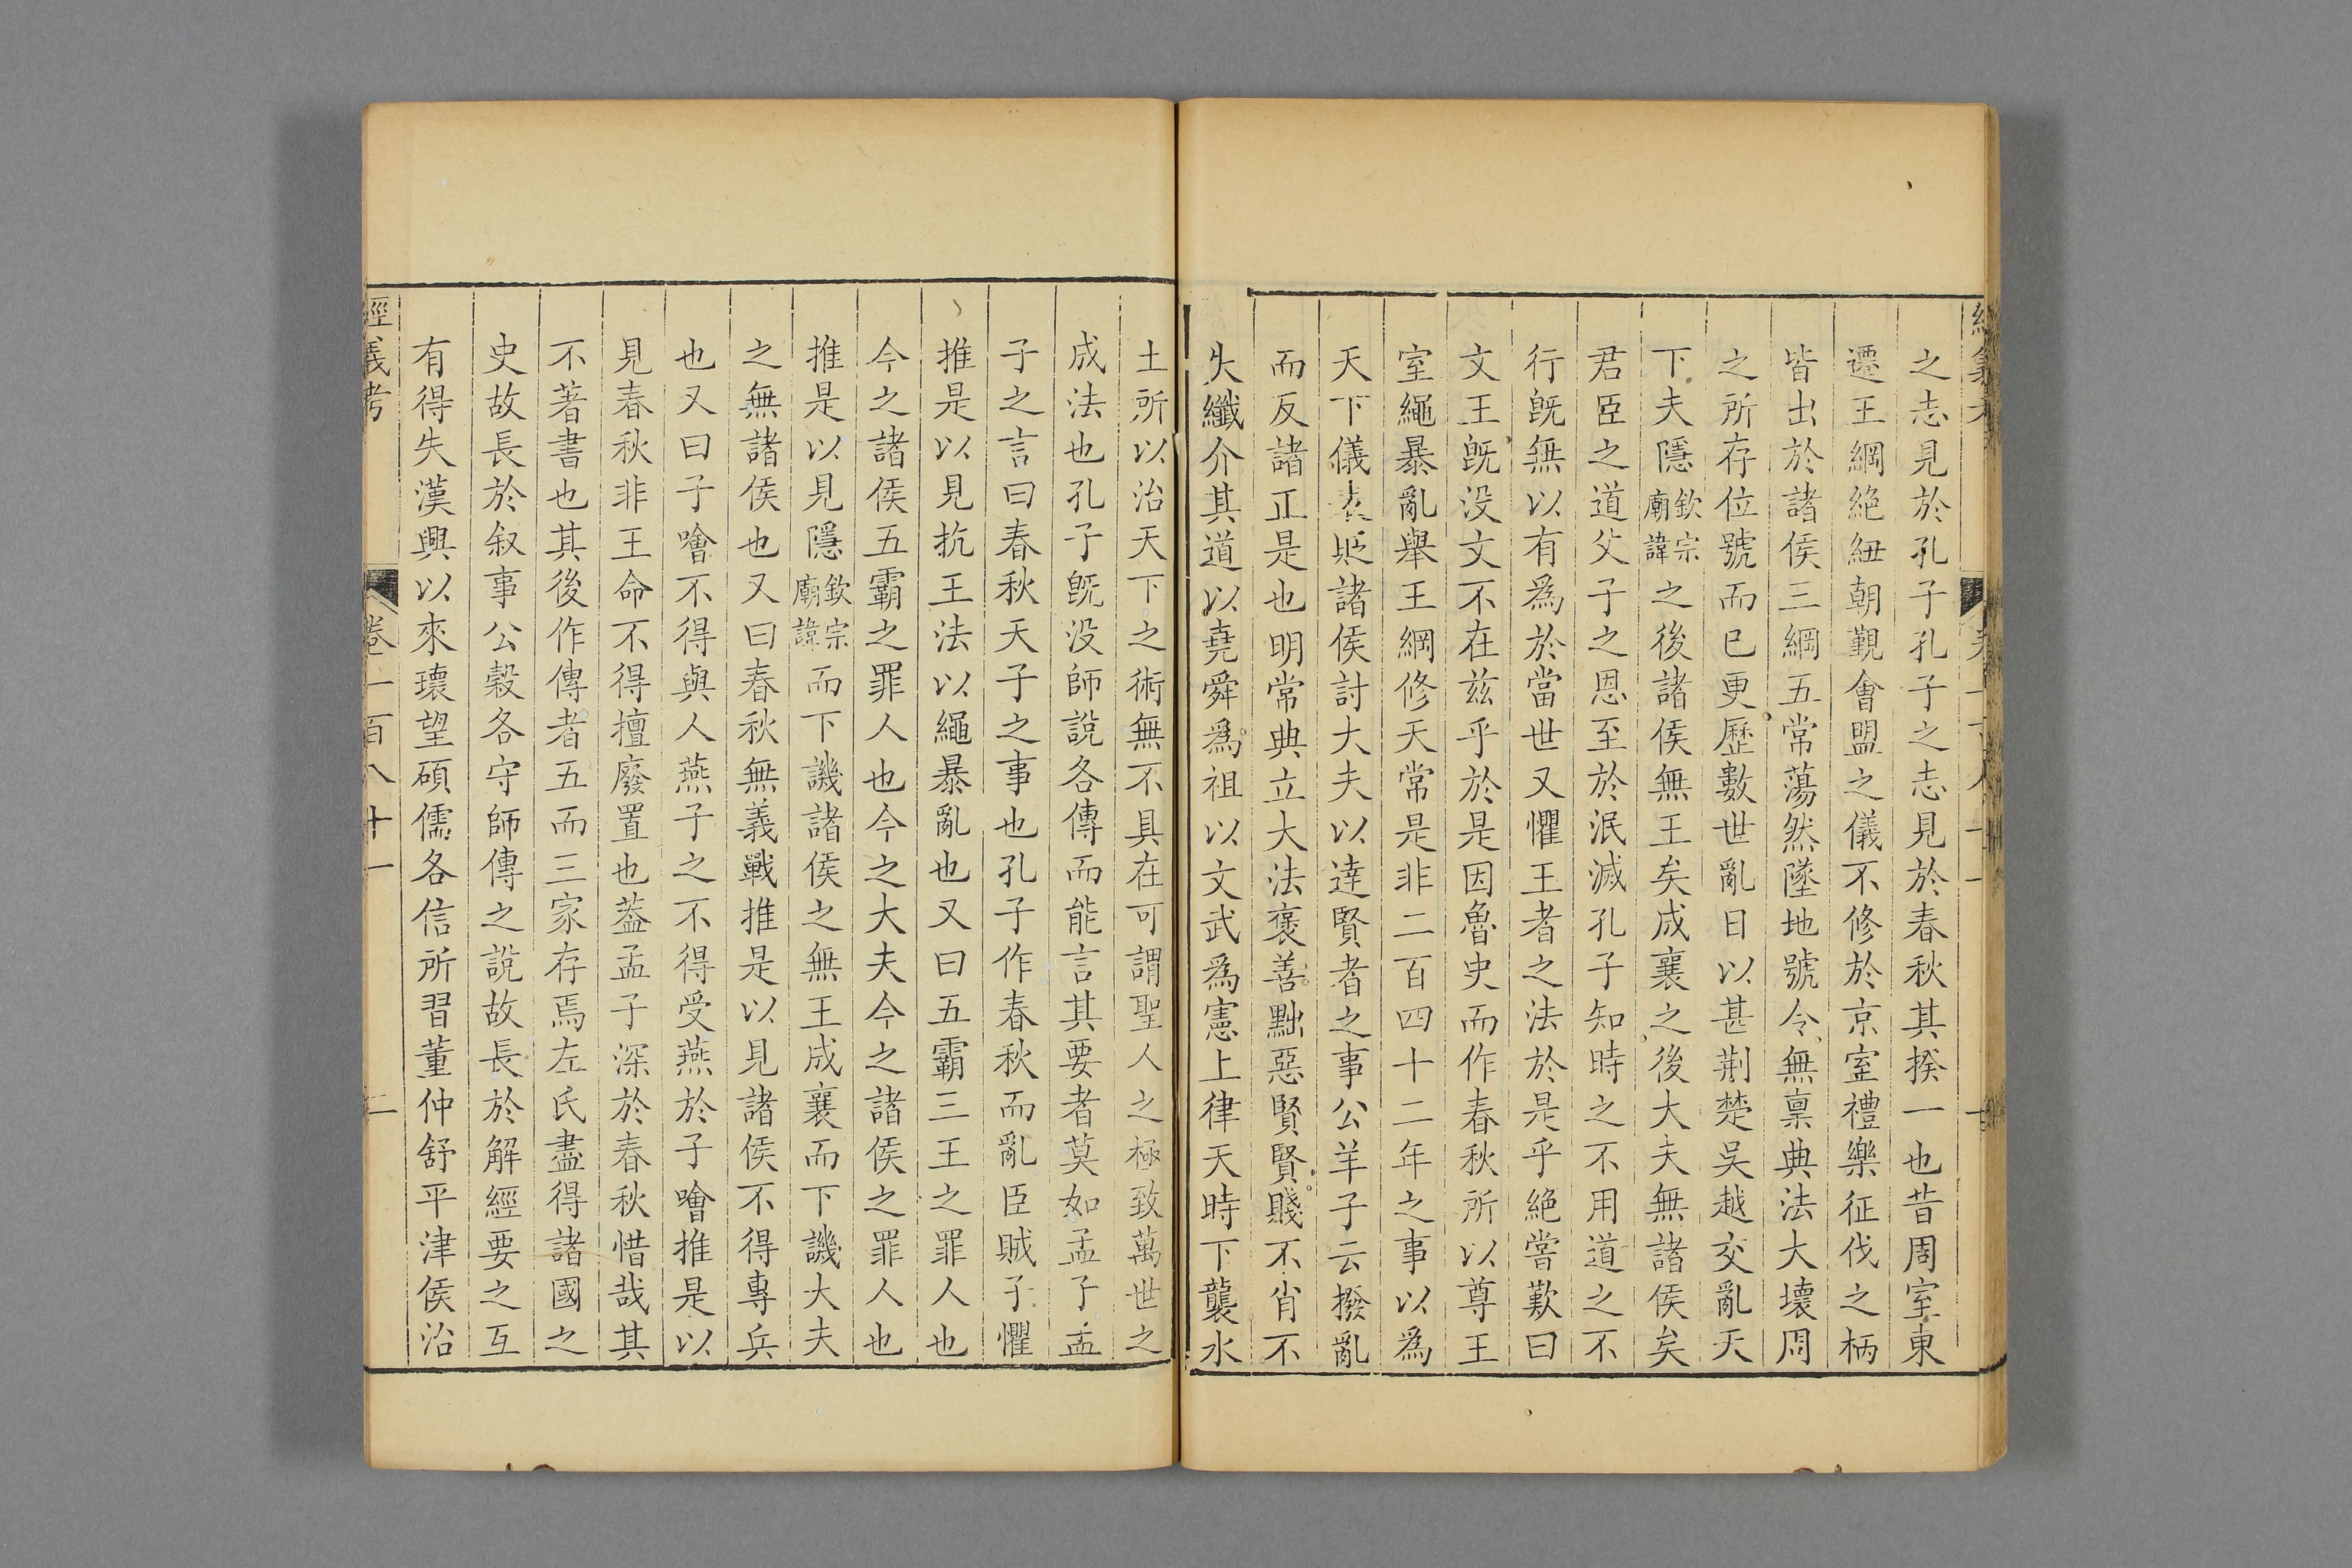 之志見於孔子孔子之志見於春秋其揆一也昔周室東
遷王綱絶紐朝覲會盟之儀不修於京室禮樂征伐之柄
皆出於諸侯三綱五常蕩然墜地號令無禀典法大壞周
之所存位號而已更歷數世亂日以甚荆楚吴越交亂天
下夫隱欽宗廟諱之後諸侯無王矣成襄之後大夫無諸侯矣
君臣之道父子之恩至於泯滅孔子知時之不用道之不
行旣無以有爲於當世又懼王者之法於是乎絶嘗歎曰
文王旣没文不在兹乎於是因魯史而作春秋所以尊王
室繩暴亂舉王綱修天常是非二百四十二年之事以爲
天下儀表貶諸侯討大夫以達賢者之事公羊子云撥亂
而反諸正是也明常典立大法褒善黜惡賢賢賤不肖不
失纖介其道以堯舜爲祖以文武爲憲上律天時下襲水
土所以治天下之術無不具在可謂聖人之極致萬世之
成法也孔子旣没師說各傳而能言其要者莫如孟子孟
子之言曰春秋天子之事也孔子作春秋而亂臣賊子懼
推是以見抗王法以繩暴亂也又曰五霸三王之罪人也
今之諸侯五霸之罪人也今之大夫今之諸侯之罪人也
推是以見隱欽宗廟諱而下譏諸侯之無王成襄而下譏大夫
之無諸侯也又曰春秋無義戰推是以見諸侯不得專兵
也又曰子噲不得與人燕子之不得受燕於子噲推是以
見春秋非王命不得擅廢置也葢孟子深於春秋惜哉其
不著書也其後作傳者五而三家存焉左氏盡得諸國之
史故長於叙事公榖各守師傳之說故長於解經要之互
有得失漢興以來瓌望碩儒各信所習董仲舒平津侯治
經義考
卷一百八十一
二